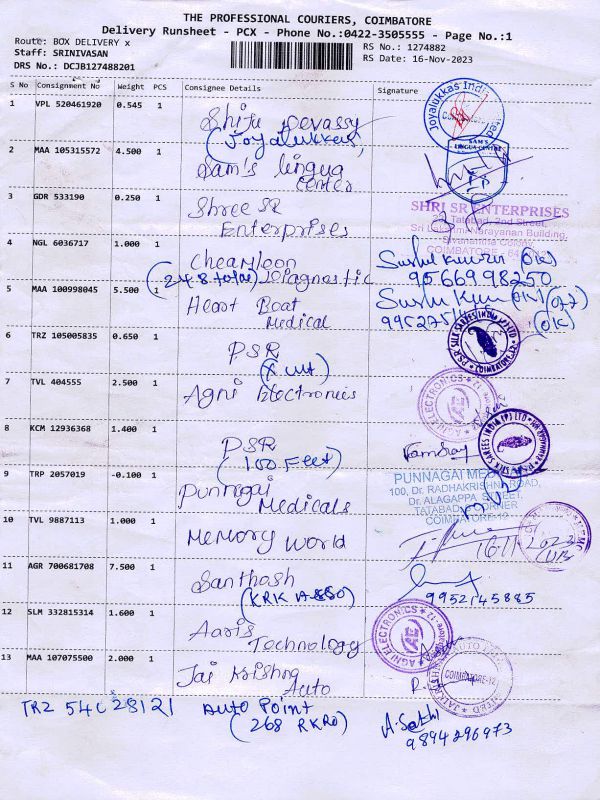 THE PROFESSIONAL COURIERS, COIMBATORE
Delivery Runsheet - PCX - Phone No.:0422-3505555 - Page No.:1
Route: BOX DELIVERY x
RS No.: 1274882
Staff: SRINIVASAN
RS Date: 16-Nov-2023
DRS No.: DCJB127488201
S No Consignment No Weight PCS Consignee Details Signature
1 VPL 520461920 0.545 1 Shiju Devassy
(Joyalukkas)
Joyalukkas India
2 MAA 105315572 4.500 1 Sam's lingua
center
SAM'S
LINGUA CENTRE
3 GDR 533190 0.250 1 Shree SR
Enterprises
SHRI SR ENTERPRISES
22, Tatabad, 2nd Street,
Sri Lakshmi Narayanan Building,
Sivananda Colony,
COIMBATORE
4 NGL 6036717 1.000 1
9566998250
5 MAA 100998045 5.500 1 Heart Beat
Medical
6 TRZ 105005835 0.650 1 PSR
PSR SILK SAREES INDIA (P) LTD
COIMBATORE-12
7 TVL 404555 2.500 1 Agni Electronics
AGNI ELECTRONICS
8 KCM 12936368 1.400 1 PSR
(100 Feet)
SILK SAREES INDIA (P) LTD
9 TRP 2057019 -0.100 1 Punnagai
Medicals
PUNNAGAI
100, Dr. RADHAKRISHNA ROAD,
Dr. ALAGAPPA STREET,
TATABAD CORNER
COIMBATORE-12
10 TVL 9887113 1.000 1 Memory World
11 AGR 700681708 7.500 1 Santhosh
(KRK ASSO)
9952145885
12 SLM 332815314 1.600 1 Aaris
Technology
AGNI ELECTRONICS
13 MAA 107075500 2.000 1 Jai Krishna
Auto
COIMBATORE-12
TRZ 54C28121 Auto Point
9894296973